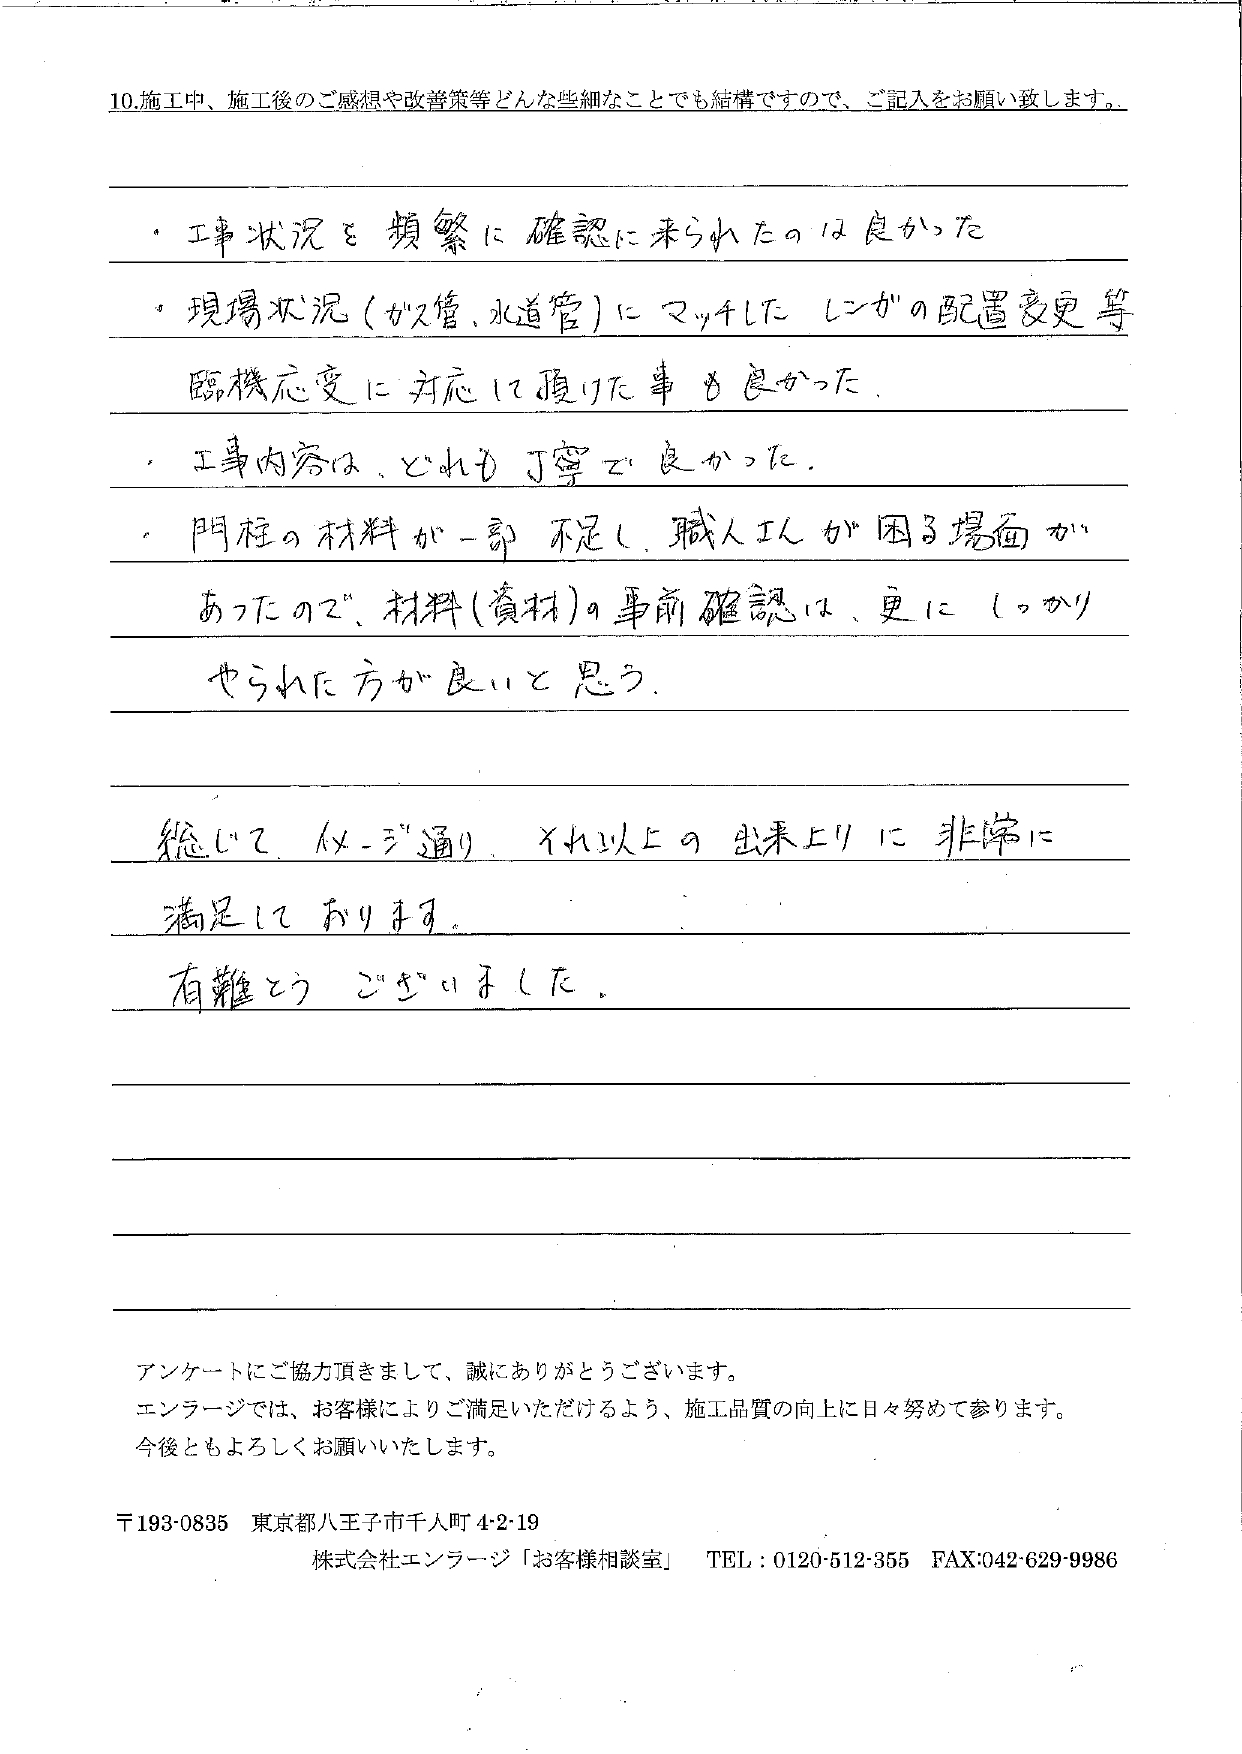 10.施工中、施工後のご感想や改善策等どんな些細なことでも結構ですので、ご記入をお願い致します。
・工事状況を頻繁に確認に来られたのは良かった
・現場状況(ガス管、水道管)にマッチしたレンガの配置変更等
臨機応変に対応して頂けた事も良かった.
・工事内容は、どれも丁寧で良かった.
・門柱の材料が一部不足し、職人さんが困る場面が
あったので、材料(資材)の事前確認は、更にしっかり
やられた方が良いと思う.
総じて、イメージ通り、それ以上の出来上りに非常に
満足しております。
有難とうございました.
アンケートにご協力頂きまして、誠にありがとうございます。
エンラージでは、お客様によりご満足いただけるよう、施工品質の向上に日々努めて参ります。
今後ともよろしくお願いいたします。
〒193-0835 東京都八王子市千人町 4-2-19
株式会社エンラージ「お客様相談室」 TEL : 0120-512-355 FAX:042-629-9986